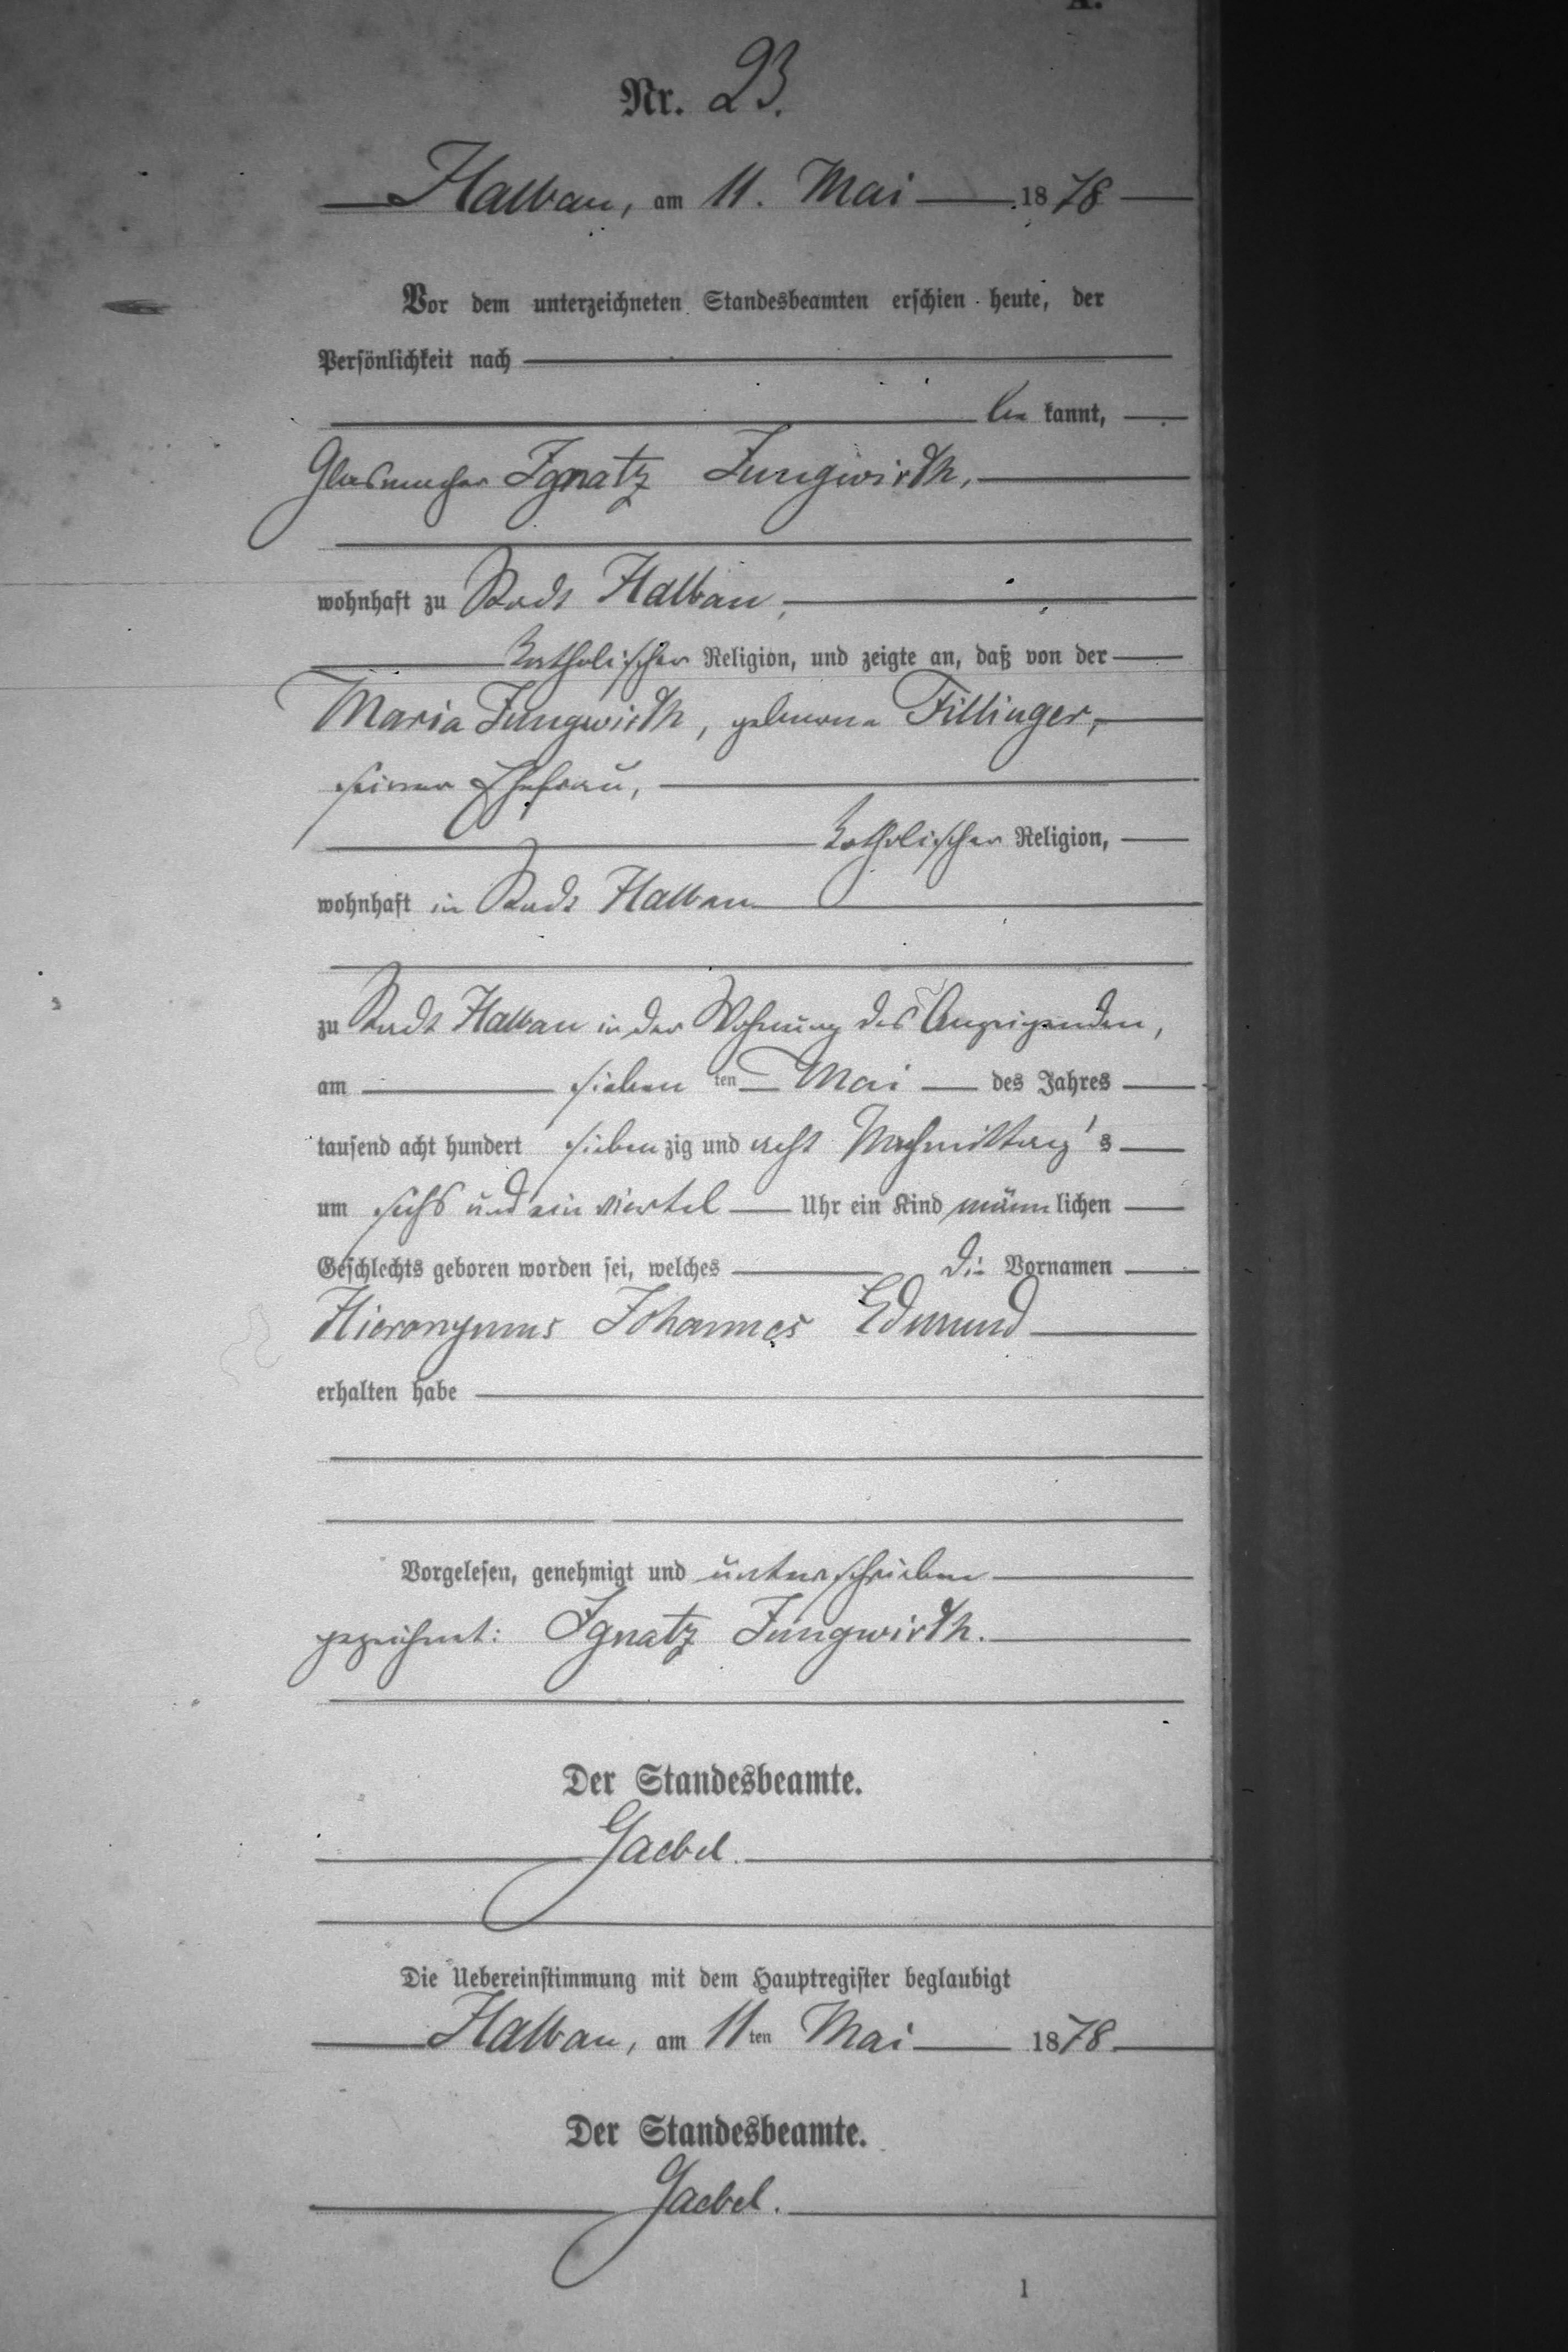 A.
Nr. 23.
Halbau, am 11. Mai 1878
Vor dem unterzeichneten Standesbeamten erschien heute, der
Persönlichkeit nach
be kannt,
Glasmacher Ignatz Jungwirth,
wohnhaft zu Stadt Halbau,
katholischer Religion, und zeigte an, daß von der
Maria Jungwirth, geborene Fillinger,
seiner Ehefrau,
katholischer Religion,
wohnhaft in Stadt Halbau
zu Stadt Halbau in der Wohnung des Anzeigenden,
am sieben ten Mai des Jahres
tausend acht hundert sieben zig und acht Nachmittag's
um sechs und ein viertel Uhr ein Kind männ lichen
Geschlechts geboren worden sei, welches die Vornamen
Hieronymus Johannes Edmund
erhalten habe
Vorgelesen, genehmigt und unterschrieben
gezeichnet: Ignatz Jungwirth.
Der Standesbeamte.
Gaebel.
Die Uebereinstimmung mit dem Hauptregister beglaubigt
Halbau, am 11ten Mai 1878
Der Standesbeamte.
Gaebel.
1